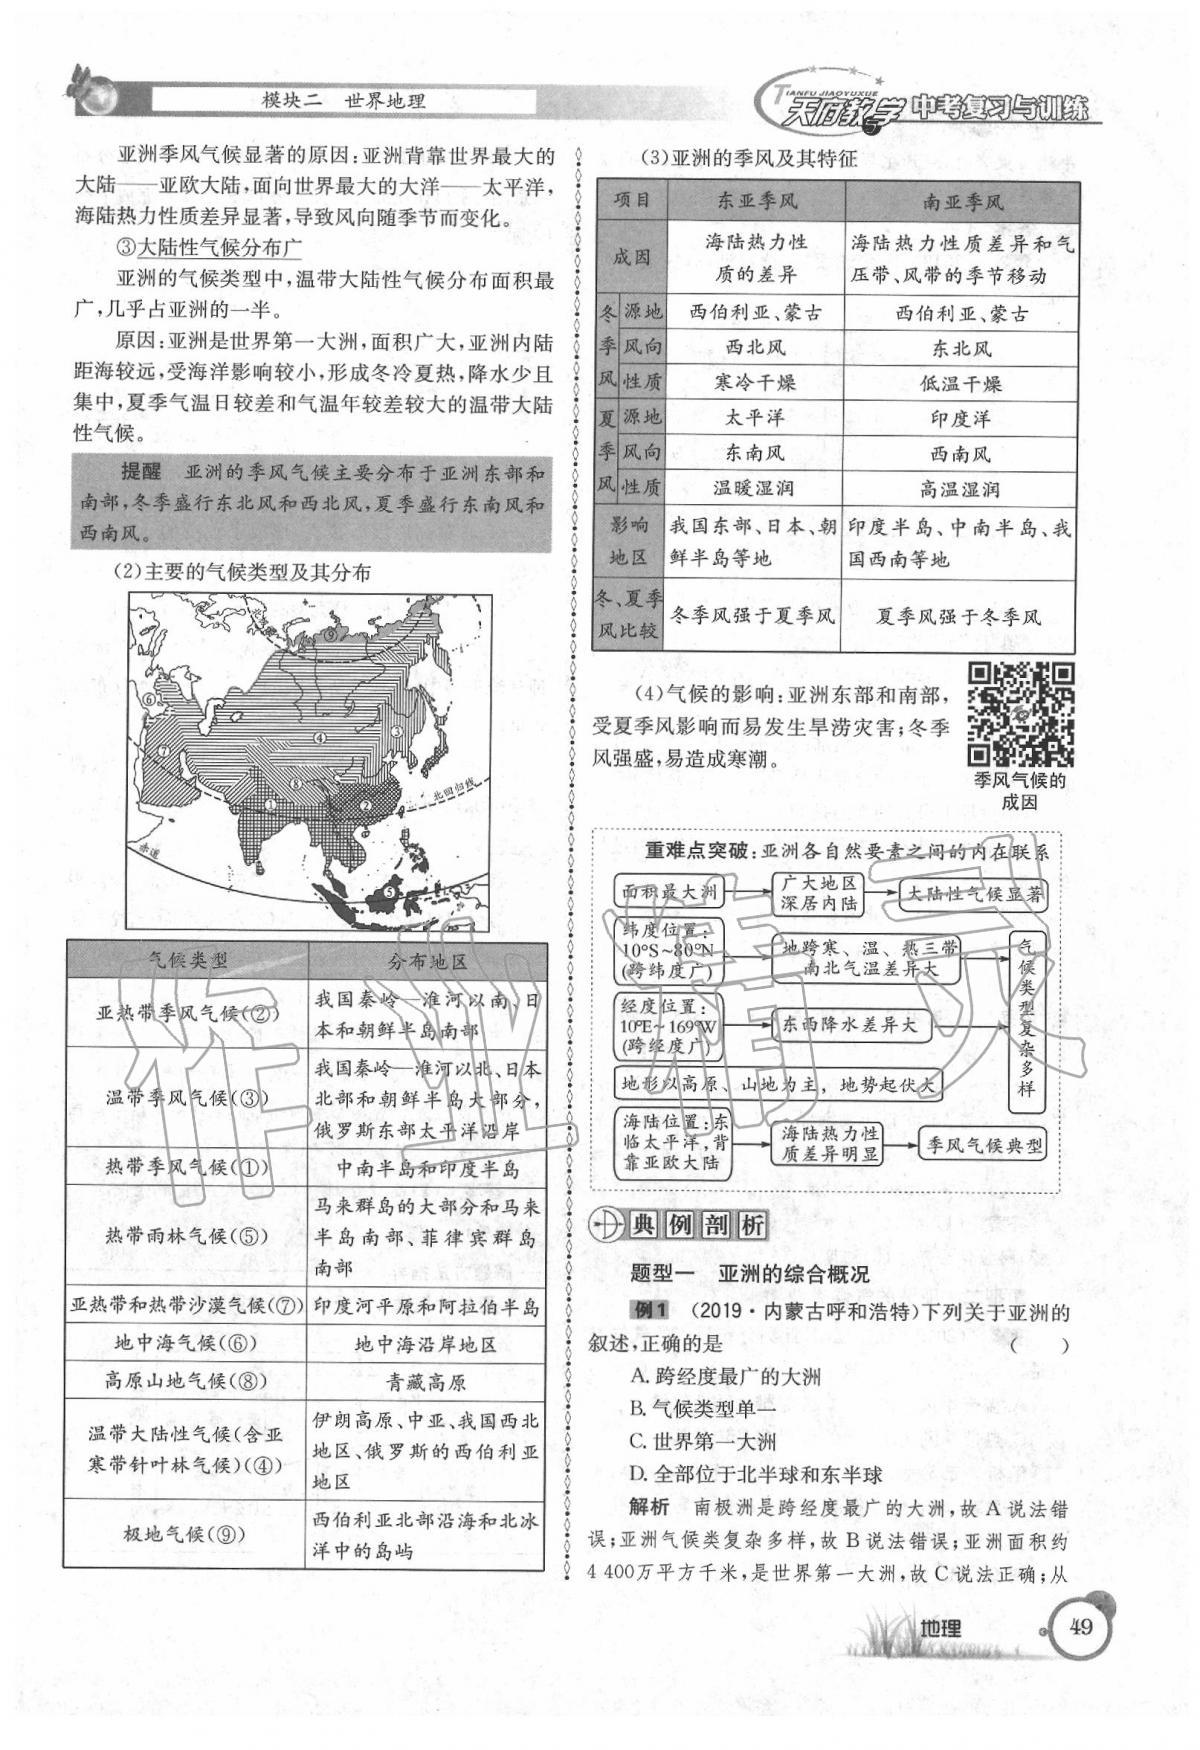 模块二 世界地理
TIANFU JIAOYUXUE
天府教与学 中考复习与训练
亚洲季风气候显著的原因:亚洲背靠世界最大的
大陆——亚欧大陆,面向世界最大的大洋——太平洋,
海陆热力性质差异显著,导致风向随季节而变化。
③大陆性气候分布广
亚洲的气候类型中,温带大陆性气候分布面积最
广,几乎占亚洲的一半。
原因:亚洲是世界第一大洲,面积广大,亚洲内陆
距海较远,受海洋影响较小,形成冬冷夏热,降水少且
集中,夏季气温日较差和气温年较差较大的温带大陆
性气候。
提醒 亚洲的季风气候主要分布于亚洲东部和
南部,冬季盛行东北风和西北风,夏季盛行东南风和
西南风。
(2)主要的气候类型及其分布
北极圈
⑨
⑥
⑦
④
③
⑧
①
②
北回归线
赤道
⑤
气候类型 分布地区
亚热带季风气候(②)
我国秦岭—淮河以南、日
本和朝鲜半岛南部
温带季风气候(③)
我国秦岭—淮河以北、日本
北部和朝鲜半岛大部分,
俄罗斯东部太平洋沿岸
热带季风气候(①) 中南半岛和印度半岛
热带雨林气候(⑤)
马来群岛的大部分和马来
半岛南部、菲律宾群岛
南部
亚热带和热带沙漠气候(⑦) 印度河平原和阿拉伯半岛
地中海气候(⑥) 地中海沿岸地区
高原山地气候(⑧) 青藏高原
温带大陆性气候(含亚
寒带针叶林气候)(④)
伊朗高原、中亚、我国西北
地区、俄罗斯的西伯利亚
地区
极地气候(⑨)
西伯利亚北部沿海和北冰
洋中的岛屿
(3)亚洲的季风及其特征
项目 东亚季风 南亚季风
成因
海陆热力性
质的差异
海陆热力性质差异和气
压带、风带的季节移动
冬季风
源地 西伯利亚、蒙古 西伯利亚、蒙古
风向 西北风 东北风
性质 寒冷干燥 低温干燥
夏季风
源地 太平洋 印度洋
风向 东南风 西南风
性质 温暖湿润 高温湿润
影响
地区
我国东部、日本、朝
鲜半岛等地
印度半岛、中南半岛、我
国西南等地
冬、夏季
风比较
冬季风强于夏季风 夏季风强于冬季风
(4)气候的影响:亚洲东部和南部,
受夏季风影响而易发生旱涝灾害;冬季
风强盛,易造成寒潮。
季风气候的
成因
重难点突破:亚洲各自然要素之间的内在联系
面积最大洲
广大地区
深居内陆
大陆性气候显著
纬度位置:
10°S~80°N
(跨纬度广)
地跨寒、温、热三带
南北气温差异大
经度位置:
10°E~169°W
(跨经度广)
东西降水差异大
地形以高原、山地为主,地势起伏大
气候类型复杂多样
海陆位置:东
临太平洋,背
靠亚欧大陆
海陆热力性
质差异明显
季风气候典型
典例剖析
题型一 亚洲的综合概况
例1 (2019·内蒙古呼和浩特)下列关于亚洲的
叙述,正确的是 ( )
A. 跨经度最广的大洲
B. 气候类型单一
C. 世界第一大洲
D. 全部位于北半球和东半球
解析 南极洲是跨经度最广的大洲,故 A 说法错
误;亚洲气候类复杂多样,故 B 说法错误;亚洲面积约
4 400万平方千米,是世界第一大洲,故 C 说法正确;从
地理
49
作业精灵